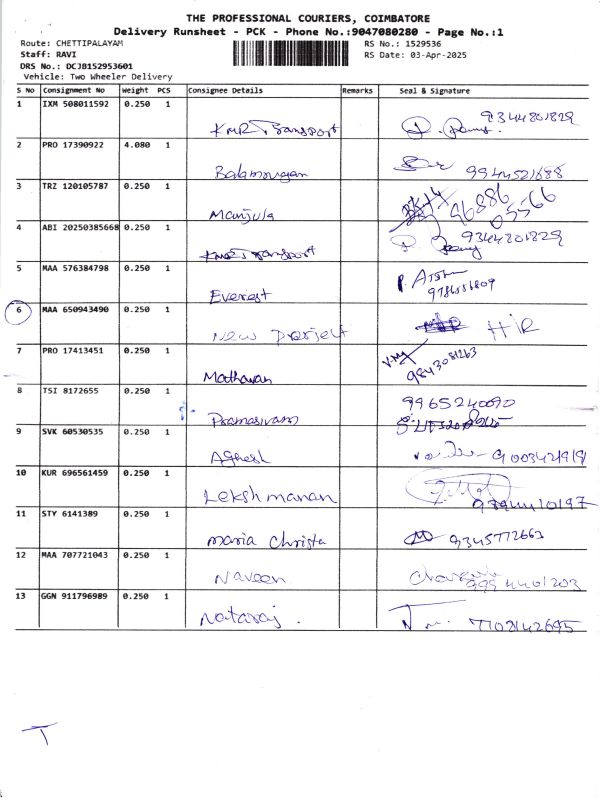 THE PROFESSIONAL COURIERS, COIMBATORE
Delivery Runsheet - PCK - Phone No.:9047080280 - Page No.:1
Route: CHETTIPALAYAM RS No.: 1529536
Staff: RAVI RS Date: 03-Apr-2025
DRS No.: DCJB152953601
Vehicle: Two Wheeler Delivery
S No Consignment No Weight PCS Consignee Details Remarks Seal & Signature
1 IXM 508011592 0.250 1 KMR Transport 9344801829
2 PRO 17390922 4.080 1 Balamurugan 9944521688
3 TRZ 120105787 0.250 1 Manjula 96886 05566
4 ABI 20250385668 0.250 1 KMR Transport 9344801829
5 MAA 576384798 0.250 1 Everest
6 MAA 650943490 0.250 1 New Project
7 PRO 17413451 0.250 1 Mathavan 9843081263
8 TSI 8172655 0.250 1 Pramasivam 9965240090
9 SVK 60530535 0.250 1 9003421919
10 KUR 696561459 0.250 1 Lekshmanan
11 STY 6141389 0.250 1 Maria Christa 9345772663
12 MAA 707721043 0.250 1 Naveen 9994401203
13 GGN 911796989 0.250 1 Nataraj. 7708142695